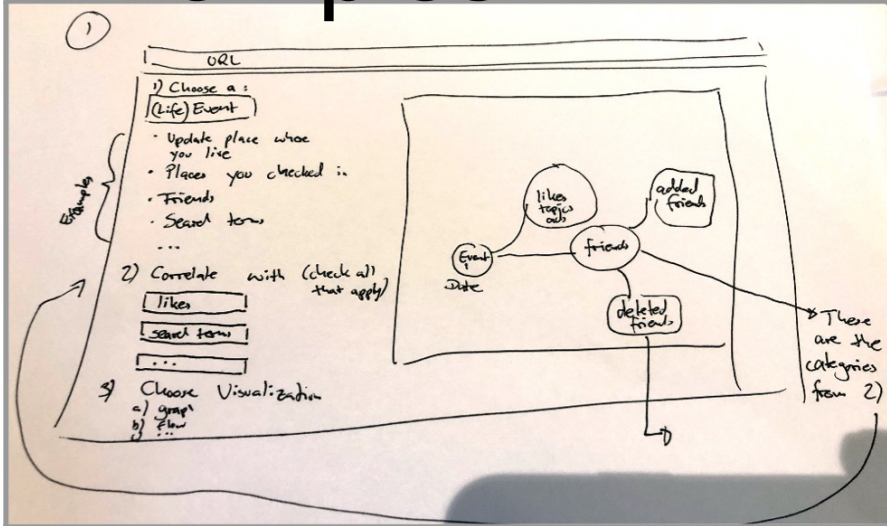 1)
URL
1) Choose a :
(Life) Event
Examples
· Update place where
you live
· Places you checked in
· Friends
· Search terms
...
2) Correlate with (check all
that apply)
likes
search terms
...
3) Choose Visualization
a) graph
b) flow
c) ...
Event
Date
likes
topics
ads
friends
added
friends
deleted
friends
These
are the
categories
from 2)